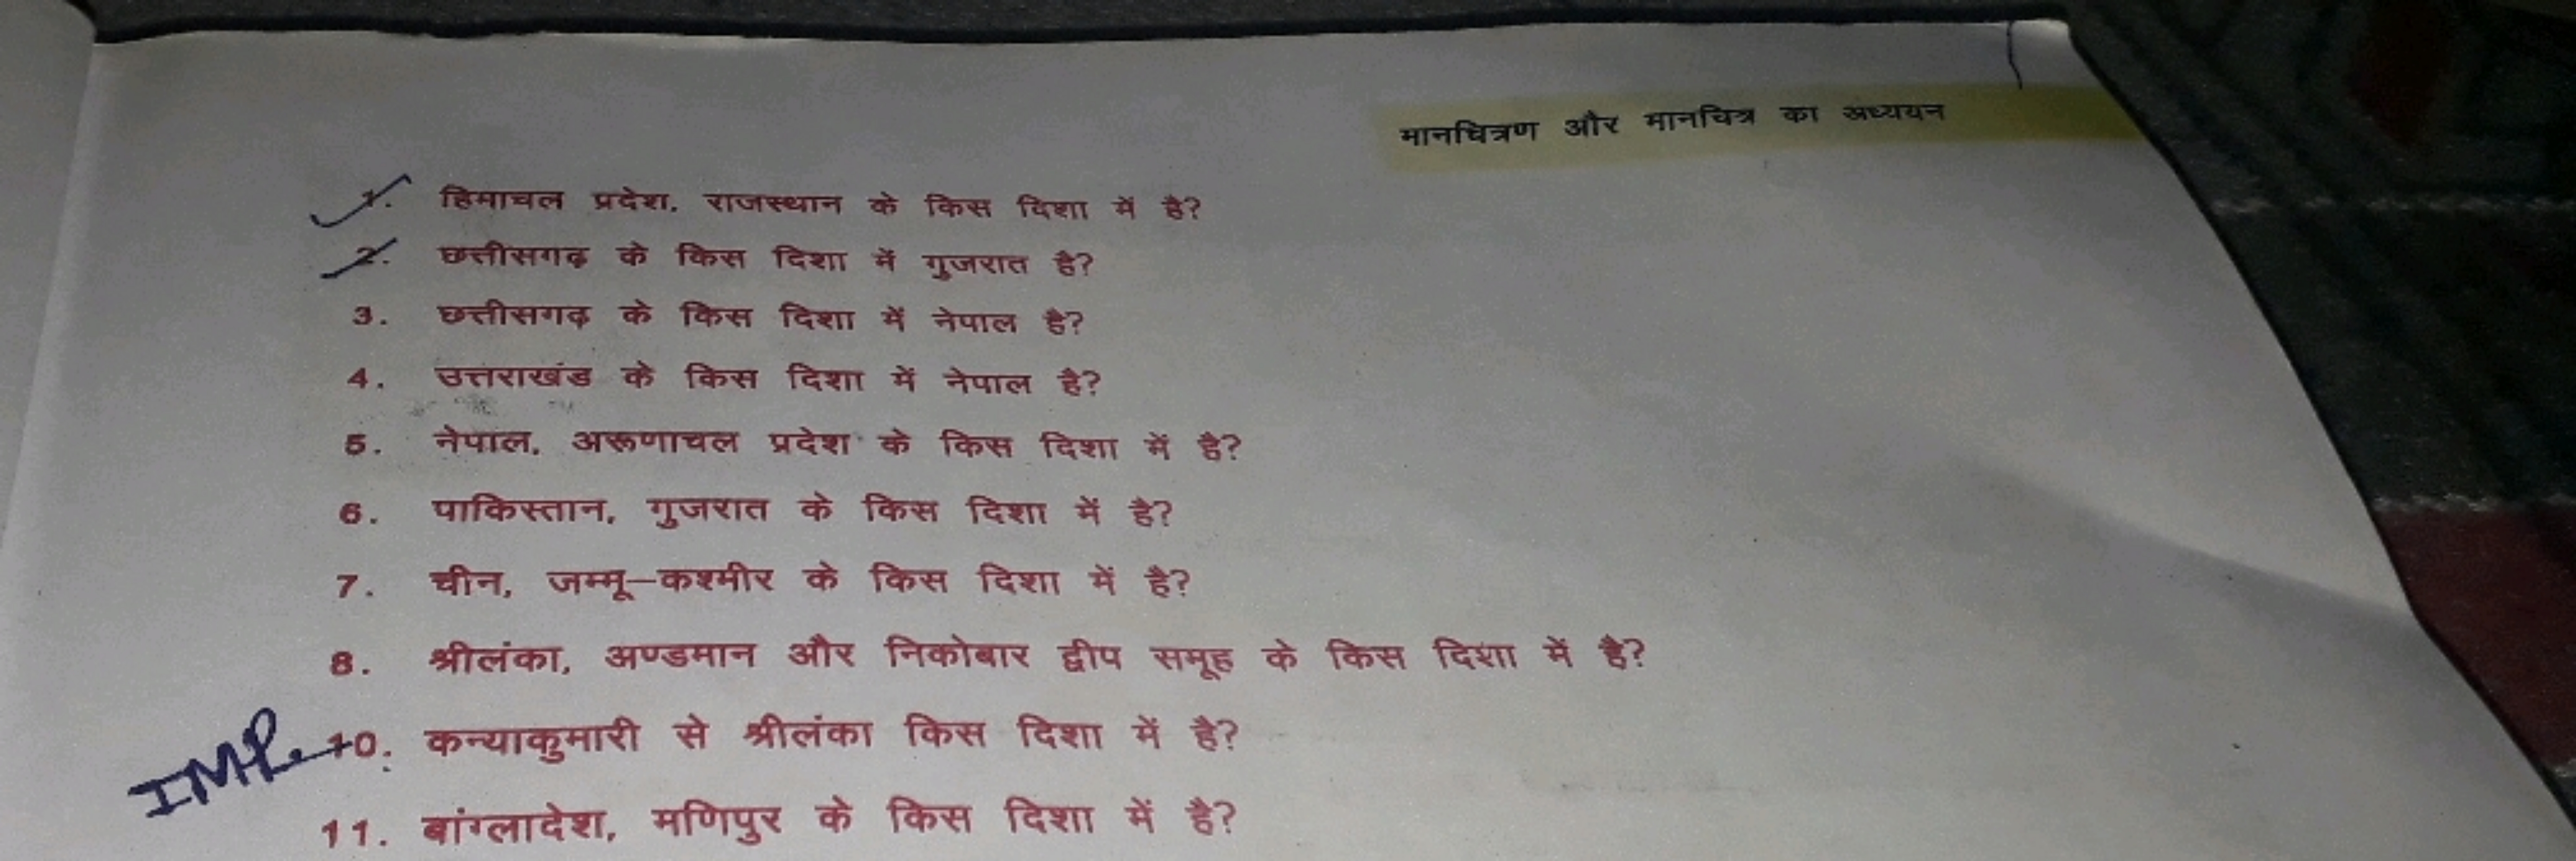 मानचित्रण और मानचित्र का अध्ययन
1. हिमाचल प्रदेश, राजस्थान के किस दिशा में है?
2. छत्तीसगढ़ के किस दिशा में गुजरात है?
3. छत्तीसगढ़ के किस दिशा में नेपाल है?
4. उत्तराखंड के किस दिशा में नेपाल है?
5. नेपाल, अरूणाचल प्रदेश के किस दिशा में है?
6. पाकिस्तान, गुजरात के किस दिशा में है?
7. चीन, जम्मू–कश्मीर के किस दिशा में है?
8. श्रीलंका, अण्डमान और निकोबार द्वीप समूह के किस दिशा में है?
IMP. 10. कन्याकुमारी से श्रीलंका किस दिशा में है?
11. बांग्लादेश, मणिपुर के किस दिशा में है?